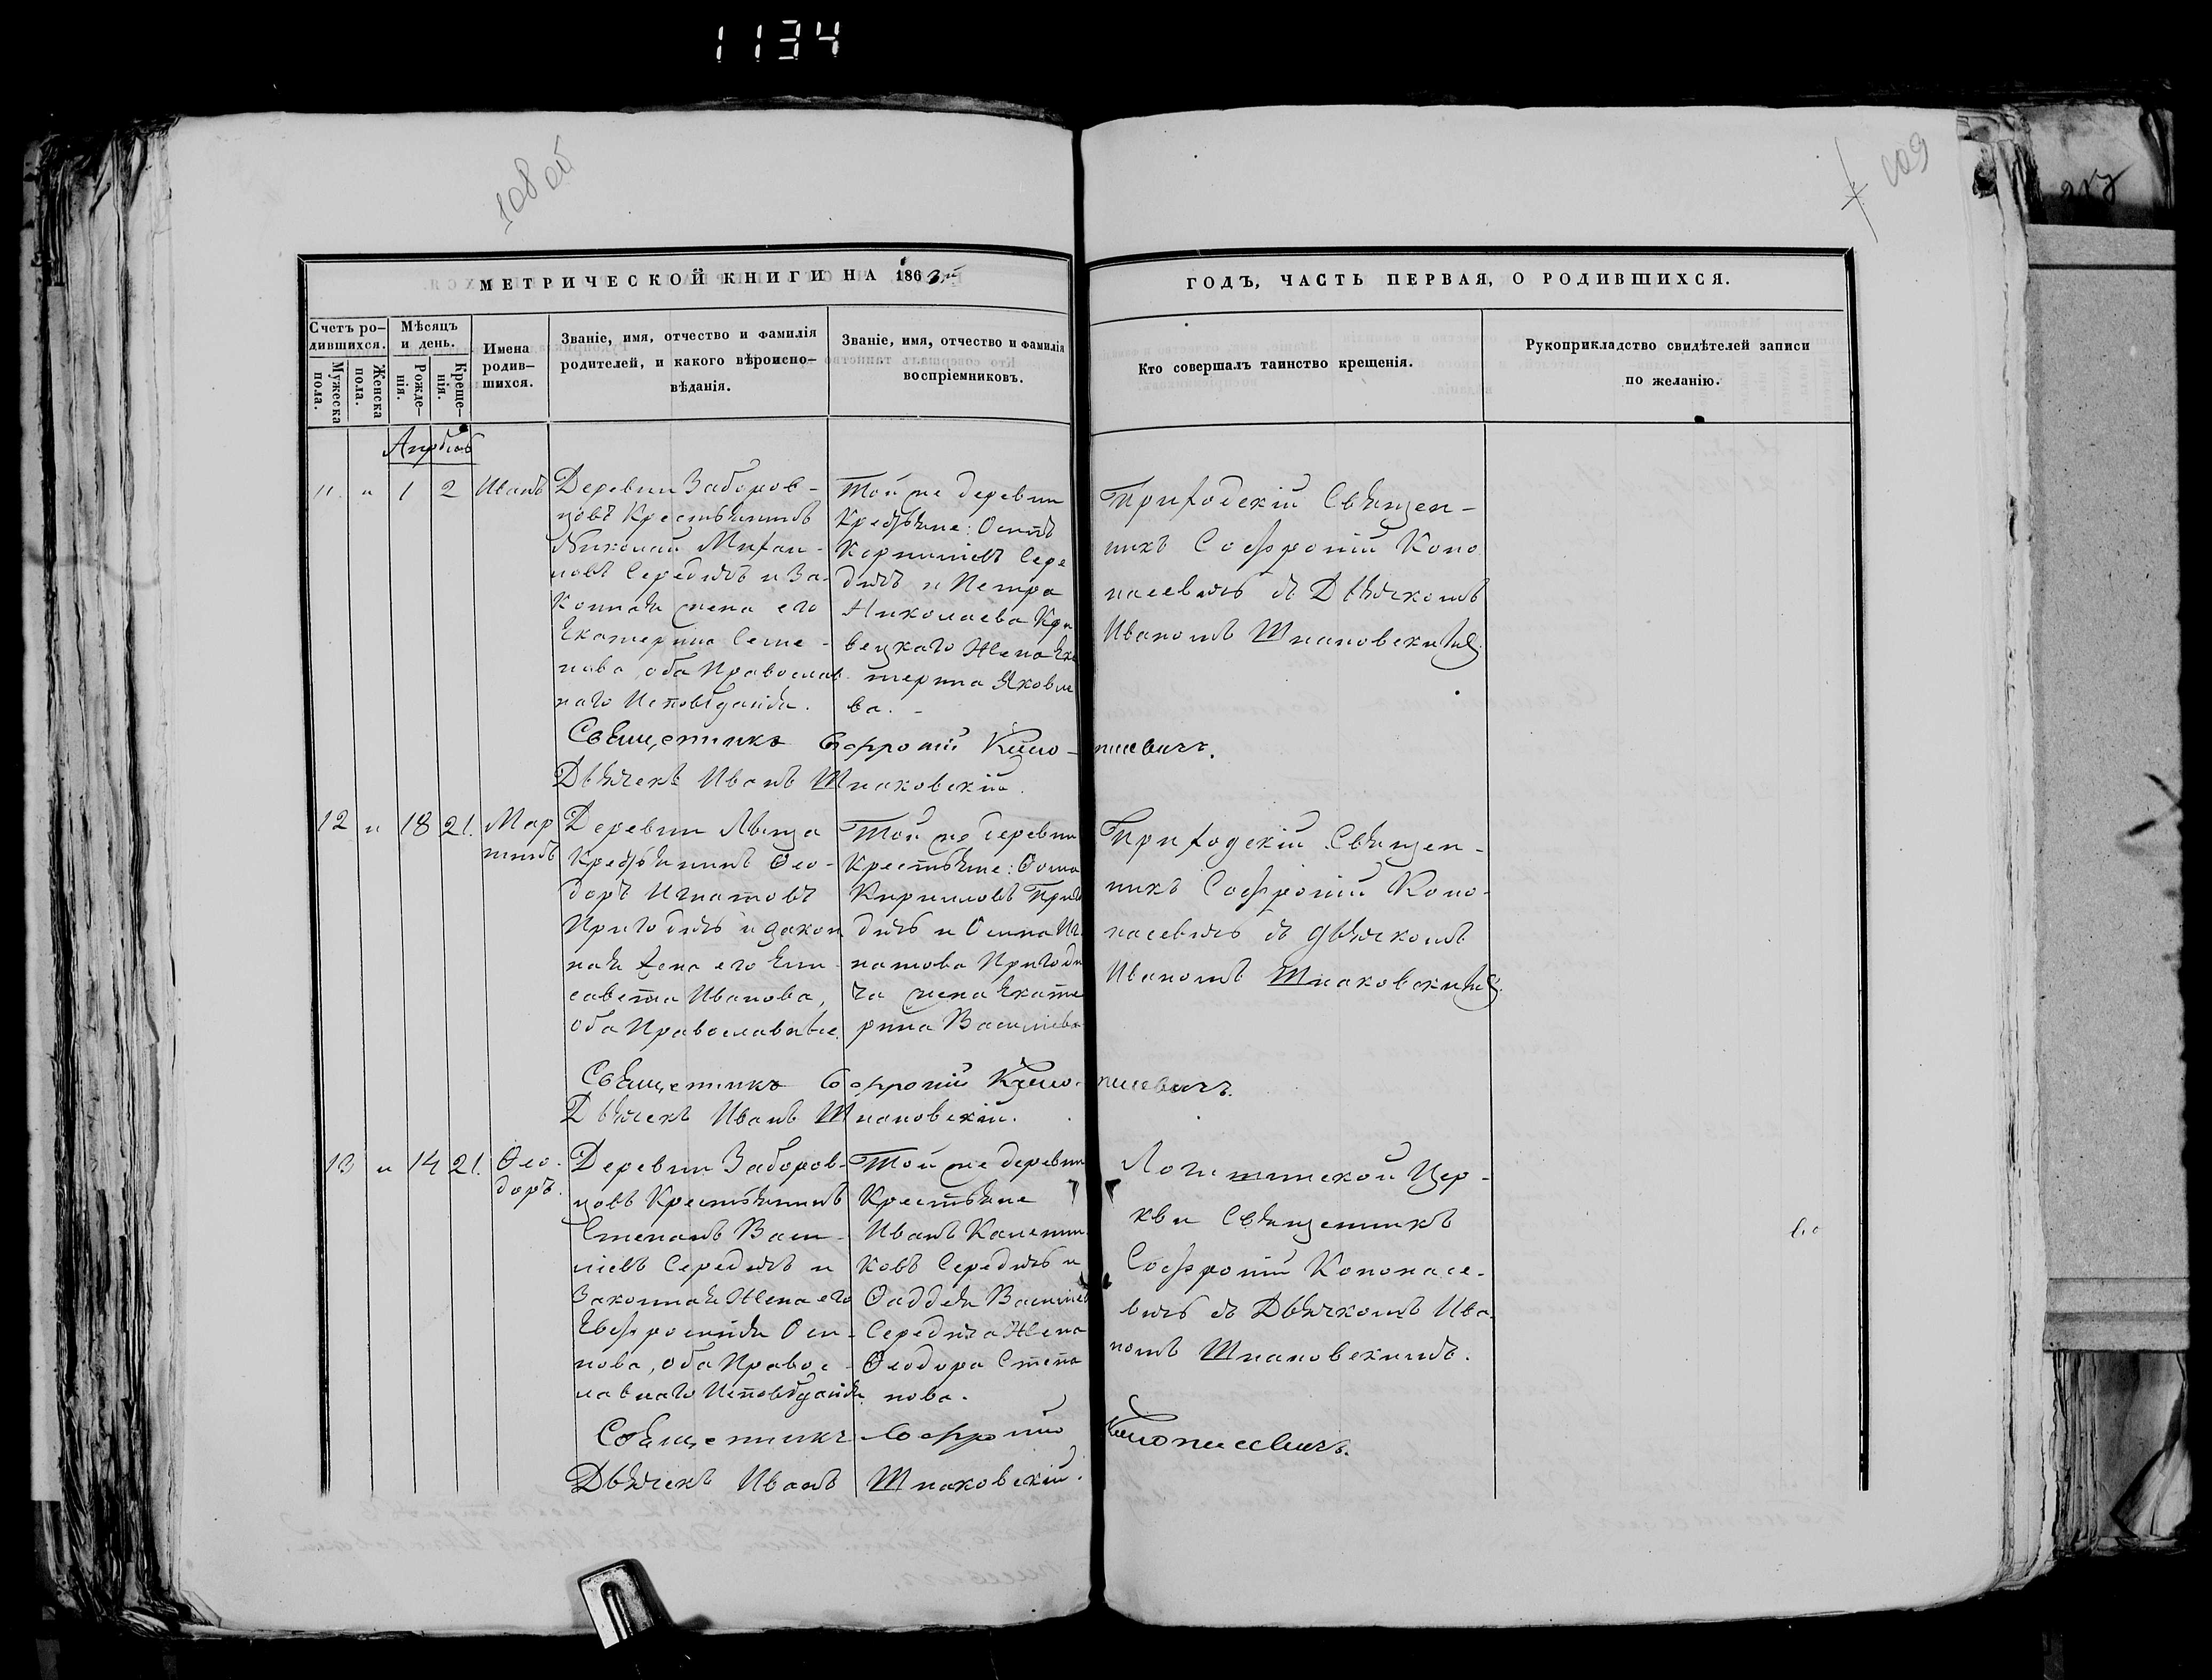 1134
108 об
109
МЕТРИЧЕСКОЙ КНИГИ НА 1863й
ГОДЪ, ЧАСТЬ ПЕРВАЯ, О РОДИВШИХСЯ.
Счетъ ро-
дившихся.
Мужеска
пола.
Женска
пола.
Мѣсяцъ
и день.
Рожде-
нія.
Креще-
нія.
Имена
родив-
шихся.
Званіе, имя, отчество и фамилія
родителей, и какого вѣроиспо-
вѣданія.
Званіе, имя, отчество и фамилія
воспріемниковъ.
Кто совершалъ таинство крещенія.
Рукоприкладство свидѣтелей записи
по желанію.
Апрѣль
11. " 1 2 Иванъ
Деревни Заборов-
цовъ Крестьянинъ
Николай Михаи-
ловъ Середичъ и За-
конная жена его
Екатерина Семе-
нова, оба Православ-
наго Исповѣданія.
Той же деревни
Крестьяне: Осипъ
Корнилiевъ Сере
дичъ и Петра
Николаева Кри
вецкаго Жена Ека
терина Яковле
ва. -
Приходскій Священ-
никъ Софроній Коно
пасевичъ съ Дьячкомъ
Иваномъ Шпаковскимъ.
Священникъ Софроній Коно-пасевичъ.
Дьячекъ Иванъ Шпаковскій.
12 " 18 21. Мар
тинъ
Деревни Лыща
Крестьянинъ Ѳео-
доръ Игнатовъ
Пригодичъ и закон
ная жена его Ели-
савета Иванова,
оба Православные.
Той же деревни
Крестьяне: Ѳома
Кирилловъ Приго
дичъ и Осипа Иг
натова Пригоди
ча жена Екате
рина Васильева
Приходскій Священ-
никъ Софроній Коно-
пасевичъ съ дьячкомъ
Иваномъ Шпаковскимъ.
Священникъ Софроній Коно-пасевичъ.
Дьячекъ Иванъ Шпаковскій.
13 " 14 21. Ѳео-
доръ.
Деревни Заборов-
цовъ Крестьянинъ
Степанъ Васи-
лiевъ Середичъ и
Законная Жена его
Евфросинія Оси-
пова, оба Правос-
лавнаго Исповѣданія.
Той же деревни
Крестьяне
Иванъ Калени
ковъ Середичъ и
Ѳаддея Василiев
Середича Жена
Ѳеодора Степа
нова.
Логишинской Цер-
кви Священникъ
Софроній Конопасе-
вичъ съ Дьячкомъ Ива-
номъ Шпаковскимъ.
Священникъ Софроній Конопасевичъ.
Дьячекъ Иванъ Шпаковскій.